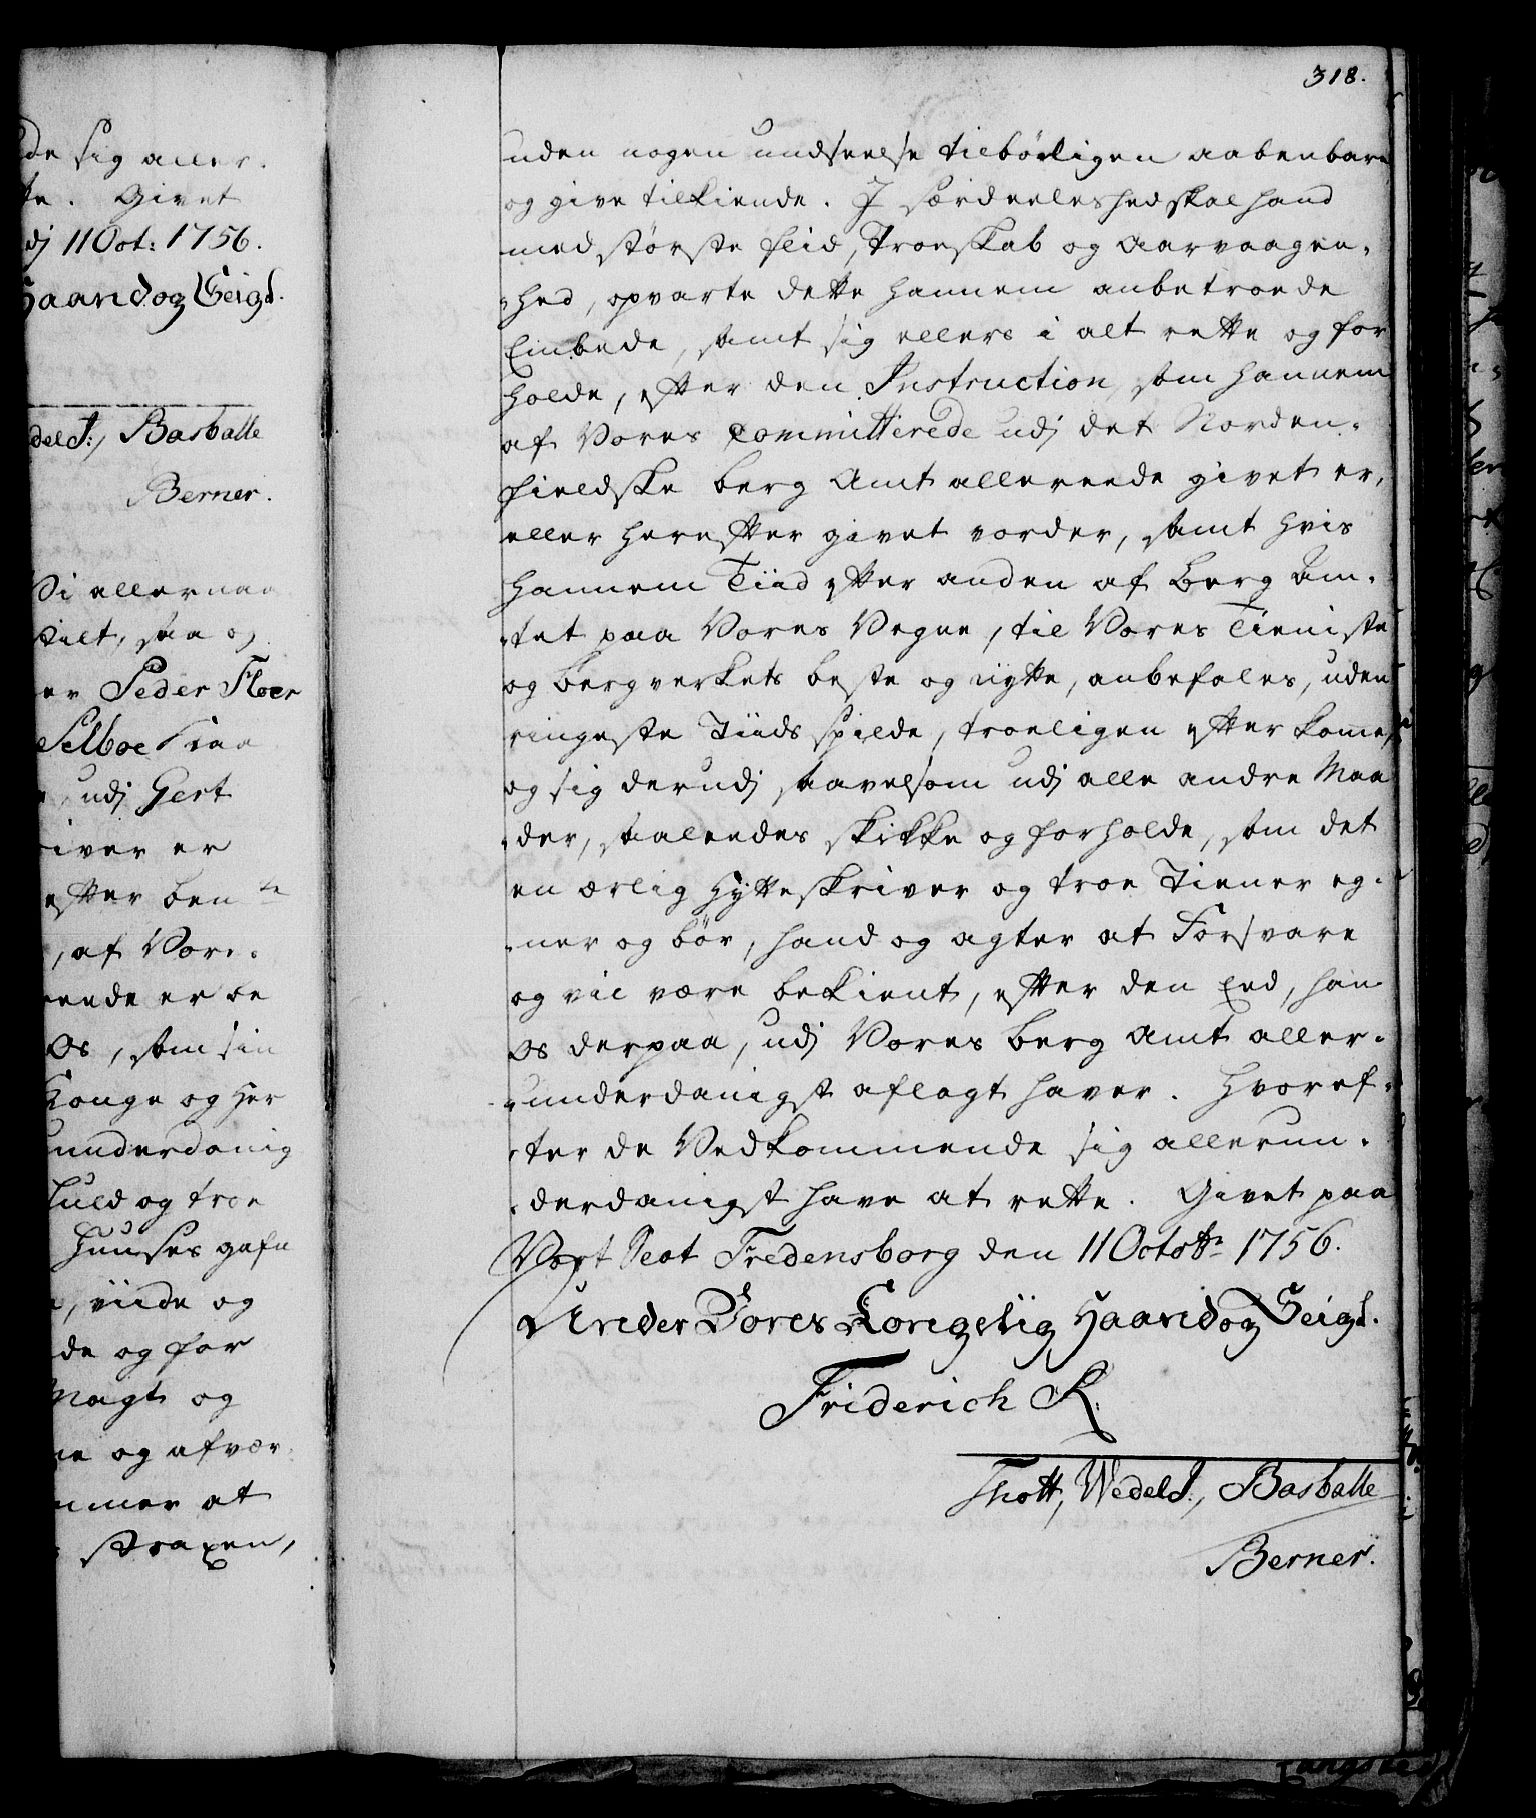 318.
de sig aller.
te. Givet
dj 11 Oct: 1756.
Haand og Seigl.
del J:, Basballe
Berner.
Vi allernaa
tilt, saa og
er Peder Floer
Selboe Kaa
udj Gert
iver er
efter ben te
, af Vore.
eende er be
Os, som sin
Konge og Her
underdanig
huld og troe
Huuses gafn
, viide og
de og for
Magt og
ne og afvær
mmer at
straxen,
uden nogen undseelse tilbørligen aabenbare
og give tilkiende. J særdeeleshed skal hand
med største fliid, Troeskab og Aarvaagen-
-hed, opvarte dette hannem anbetroede
Embede, samt sig ellers i alt rette og for
holde, efter den Instruction, som hannem
af Vores Committerede udj det Norden-
fieldske Berg Amt allereede givet er,
eller herefter givet vorder, samt hvis
hannem Tiid efter anden af Berg Am-
-tet paa Vores Vegne, til Vores Tieniste
og bergverkets beste og nytte, anbefales, uden
ringeste Tiids spilde, troeligen efterkomme,
og sig derudj saavelsom udj alle andre Maa
-der, saaleedes skikke og forholde, som det
en ærlig Hytteskriver og troe Tiener eg-
-ner og bør, hand og agter at Forsvare
og vil være bekient, efter den Eed, han
Os derpaa, udj Vores Berg Amt aller-
-underdanigst aflagt haver. Hvoref-
-ter de Vedkommende sig allerun-
-derdanigst have at rette. Givet paa
Vort Slot Fredensborg den 11 Octobr 1756.
Under Vores Kongelig Haand og Seigl.
Friderich R.
Thott, Wedel J:, Basballe
Berner.